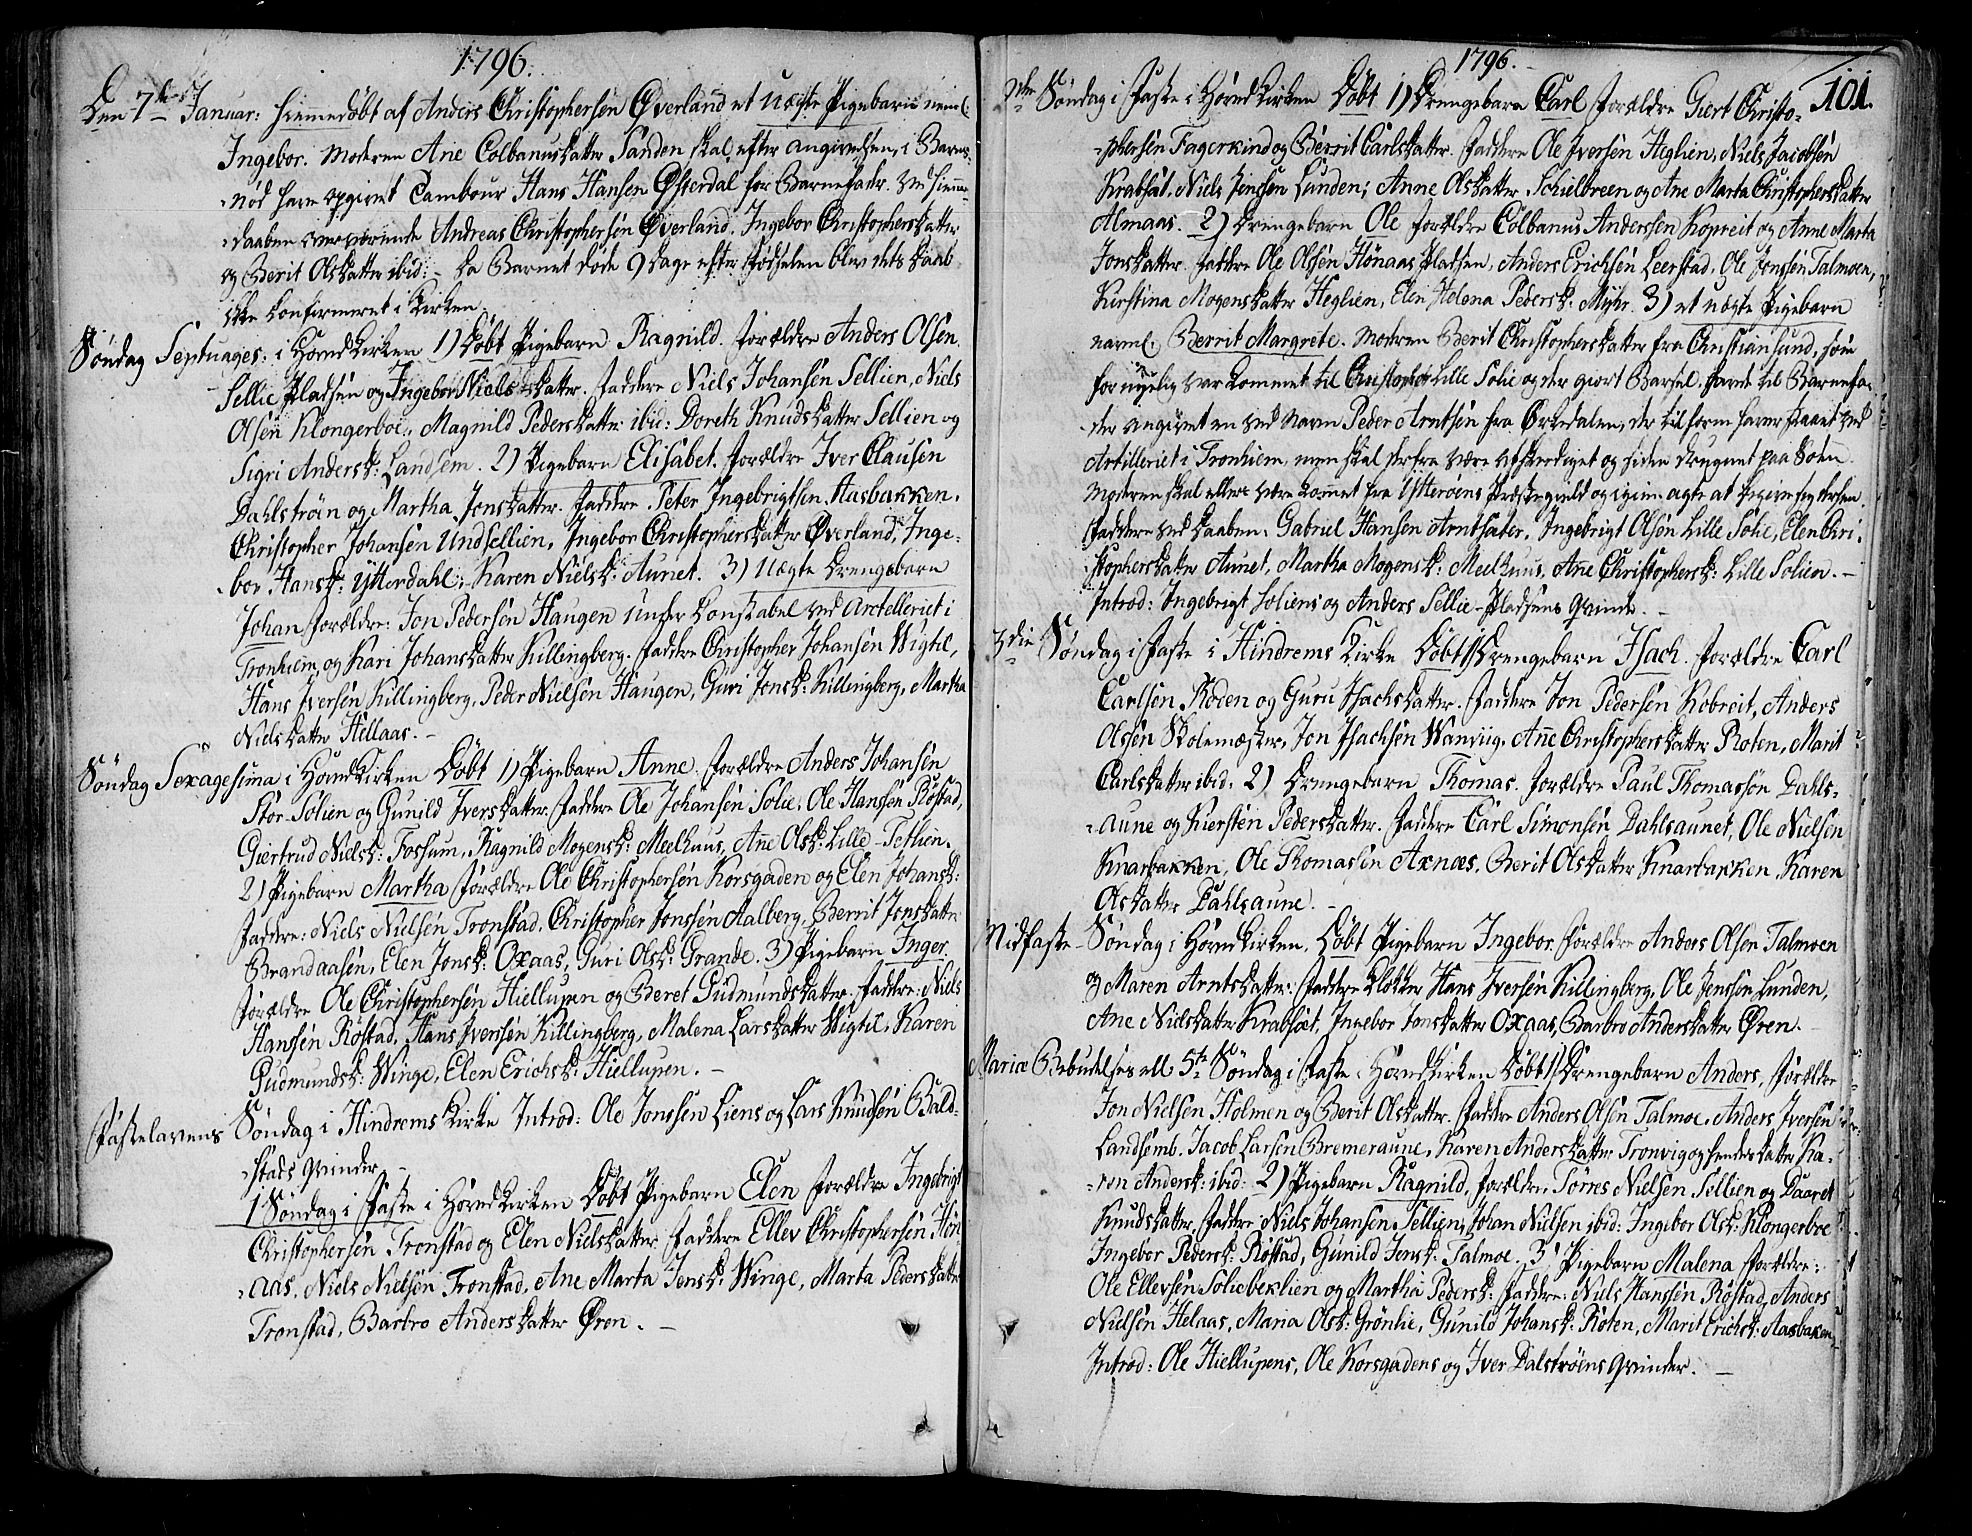 1796.
Den 7de Januar: hiemmedøbt af Anders Christophersen Øverland et uægte Pigebarn neml:
Ingebor. Moderen Ane Colbanusdatter Sanden skal efter angivelsen, i Barns-
nød have opgivet Tambour Hans Hansen Østerdal for Barnefader. Ved hiemme-
daaben overværende Andreas Christophersen Øverland, Ingebor Christophersdatter
og Berit Olsdatter ibid: - Da Barnet døde 9 Dage efter Fødselen blev dets Daab
ikke confirmeret i Kirken.
Søndag Septuages: i HovedKirken 1) Døbt Pigebarn Ragnild. Forældre Anders Olsen
Sellie Pladsen og Ingebor Nielsdatter. Faddere Niels Johansen Sellien, Niels
Olsen Klongerboe, Magnild Pedersdatter ibid: Doreth Knudsdatter Sellien og
Sigri Andersd: Landsem. 2) Pigebarn Elisabet. Forældre Iver Clausen
Dahlstrøm og Martha Jonsdatter. Faddere Peter Ingebrigtsen Aasbakken,
Christopher Johansen Undsellien, Ingebor Christophersdatter Øverland, Inge-
bor Hansd: Ytterdahl, Karen Nielsd: Aunet. 3) Uægte Drengebarn
Johan Forældre: Jon Pedersen Haugen Under Constabel ved Artelleriet i
Tronhiem og Kari Johansdatter Killingberg. Faddere Christopher Johansen Wigtil,
Hans Iversen Killingberg, Peder Nielsen Haugen, Guri Jonsd: Killingberg, Martha
Nielsdatter Hellaas. -
Søndag Sexagesima i HovedKirken Døbt 1) Pigebarn Anne. Forældre Anders Johansen
Stor-Solien og Gunild Iversdatter. Faddere Ole Johansen Solie, Ole Hansen Røstad,
Giertrud Nielsd: Fossum, Ragnild Mogensd: Meelhuus, Anne Olsd: Lille-Tetlien.
2) Pigebarn Martha Forældre Ole Christophersen Korsgaden og Elen Johansd:
Faddere: Niels Nielsen Tronstad, Christopher Jonssen Aalberg, Berrit Jonsdatter
Brandaasen, Elen Jonsd: Oxaas, Guri Olsd: Grande. 3) Pigebarn Inger.
Forældre Ole Christophersen Hiellupen og Beret Gudmundsdatter. Faddere: Niels
Hansen Røstad, Hans Iversen Killingberg, Malena Larsdatter Wigtil, Karen
Gudmundsd: Winge, Elen Erichsd: Hiellupen. -
Fastelavens Søndag i Hindrems Kirke Introd: Ole Jonssen Liens og Lars Knudsen Bald-
stads Qvinder. -
1 Søndag i Faste i HovedKirken Døbt Pigebarn Elen Forældre Ingebrigt
Christophersen Tronstad og Elen Nielsdatter. Faddere Ellev Christophersen Høn-
aas, Niels Nielsen Tronstad, Ane Marta Jensd: Winge, Marta Pedersdatter
Tronstad, Barbro Andersdatter Øren. -
1796.
101.
2den Søndag i Faste i HovedKirken Døbt 1) Drengebarn Carl Forældre Giert Christo-
phersen Fagerkind og Berrit Carlsdatter. Faddere Ole Iversen Heglien, Niels Jacobsen
Krabsæt, Niels Jenssen Lunden, Anne Olsdatter Schielbreen og Ane Marta Christophersdatter
Almaas. 2) Drengebarn Ole Forældre Colbanus Anderssen Kopreit og Anne Marta
Jonsdatter. Faddere Ole Olsen Hønaas Pladsen, Anders Erichsen Leerstad, Ole Jonssen Talmoen,
Kirstina Mogensdatter Heglien, Elen Helena Pedersd: Myhr. 3) et uægte Pigebarn
navnl. Berrit Margrete. Moderen Berit Christophersdatter fra Christiansund, som
for nyelig var kommet til Christopher Lille Solie og der giort Barsel. havde til Barnefa-
der angivet en ved Navn Peder Arntsen fra Ørkedalen, der tilforn haver staaet ved
Artilleriet i Tronhiem, men skal derfra være afskediget og siden draget paa Søen.
Moderen skal ellers være kommet fra Ytterøens Præstegield og igien agte at begive sig dertil.
Faddere ved Daaben: Gabriel Hansen Arntsæter, Ingebrigt Olsen Lille Solie, Elen Chri-
stophersdatter Aunet, Martha Mogensd: Meelhuus, Ane Christophersd: Lille Solien. -
Introd: Ingebrigt Soliens og Anders Sellie-Pladsens Qvinde. -
3die Søndag i Faste i Hindrems Kirke Døbt 1) Drengebarn Isach. Forældre Carl
Carlsen Roden og Guru Isachsdatter. Faddere Jon Pedersen Kobreit, Anders
Olsen Skolemester, Jon Isachsen Wanvig, Anne Christophersdatter Roten, Marit
Carlsdatter ibid: 2) Drengebarn Thomas. Forældre Paul Thomassen Dahls-
aune og Kiersten Pedersdatter. Faddere Carl Simonsen Dahlsaunet, Ole Nielsen
Knarbakken, Ole Thomassen Axnæs, Berit Olsdatter Knarbakken, Karen
Olsdatter Dahlsaune. -
Midfaste-Søndag i HovedKirken, Døbt Pigebarn Ingebor. Forældre Anders Olsen Talmoen
og Maren Arntsdatter. Faddere Klokker Hans Iversen Killingberg, Ole Jenssen Lunden,
Ane Nielsdatter Krabsæt, Ingebor Jonsdatter Oxaas, Barbro Andersdatter Øren. -
Mariæ Bebudelses ell. 5te Søndag i Faste i HovedKirken Døbt 1) Drengebarn Anders, Forældre
Jon Nielsen Holmen og Berit Olsdatter. Faddere Anders Olsen Talmoe, Anders Iversen
Landsemb, Jacob Larsen Bremeraune, Karen Andersdatter Tronvig og hendes datter Ka-
ren Andersd: ibid: 2) Pigebarn Ragnild, Forældre Tørres Nielsen Sellien og Daaret
Knudsdatter, Faddere Niels Johansen Sellien, Johan Nielsen ibid: Ingebor Olsd: Klongerboe
Ingebor Pedersd: Røstad, Gunild Jensd: Talmoe. 3) Pigebarn Malena Forældre:
Ole Ellevsen Soliebeklien og Martha Pedersd: Faddere: Niels Hanssen Røstad, Anders
Nielsen Helaas, Maria Olsd: Grønlie, Gunild Johansd: Roten, Marit Erichsd: Aasbaken
Introd: Ole Hiellupens, Ole Korsgadens og Iver Dalstrøens Qvinder. -